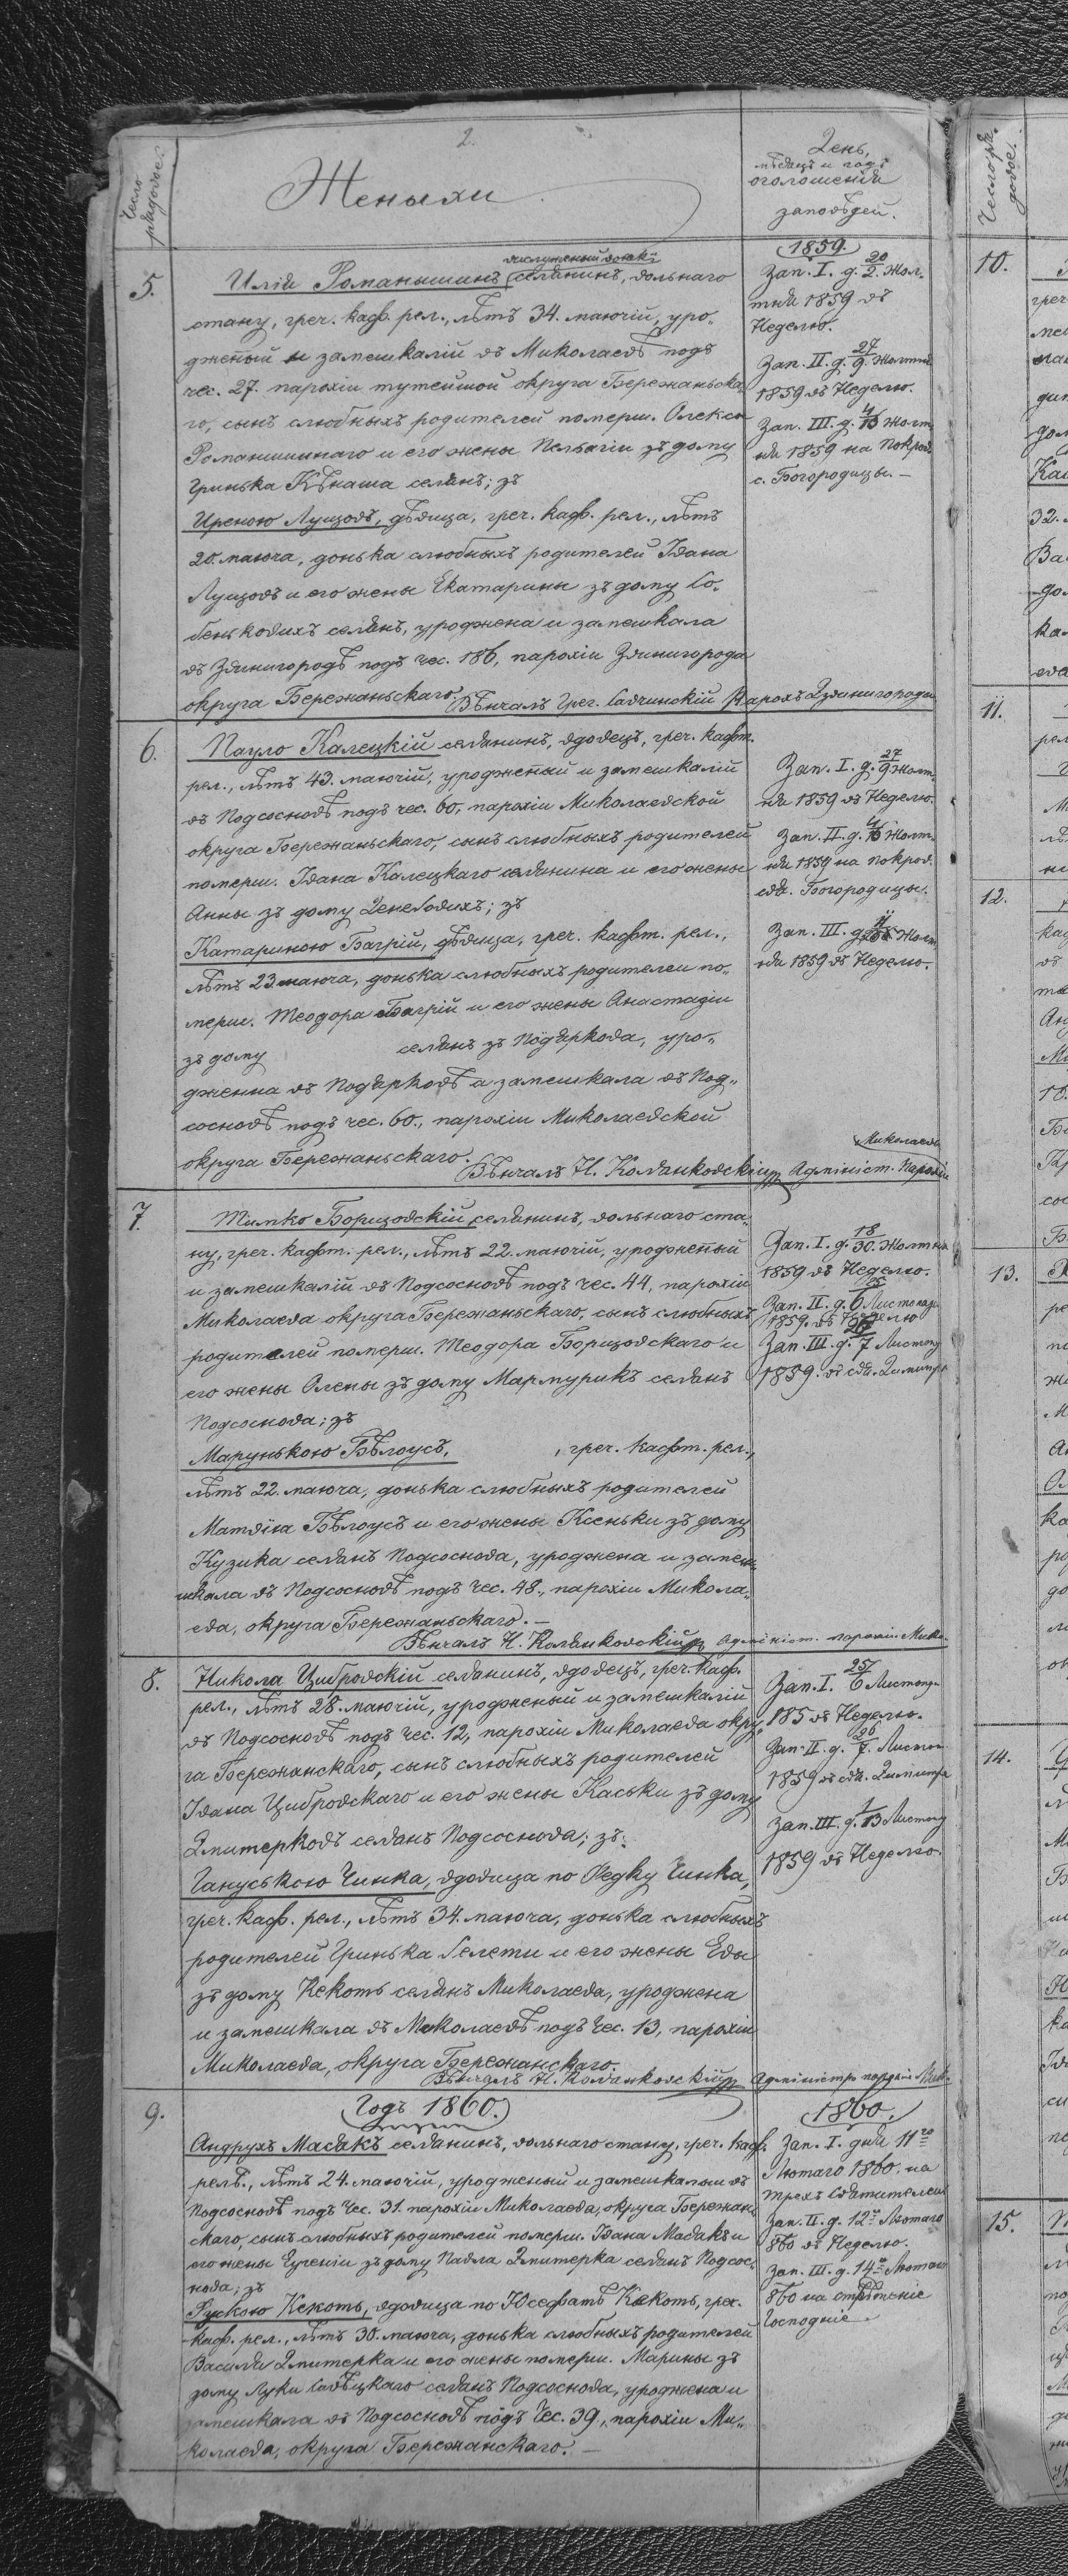 2.
Число рядовое.
Женыхи
День,
мѣсяцъ и годъ
оголошенія
заповѣдей.
5.
выслуженый вояк
Илія Романышинъ селянинъ, вольнаго
стану, греч. каѳ. рел., лѣтъ 34. маючій, уро„
дженый и замешкалій въ Миколаевѣ подъ
чес. 27. парохіи тутейшой округа Бережаньска„
го, сынъ слюбныхъ родителей померш. Олексы
Романишинаго и его жены Пелагіи зъ дому
Гринька Кѣнаша селянъ; зъ
Иреною Луцовъ, дѣвица, греч. каѳ. рел., лѣтъ
20. маюча, донька слюбныхъ родителей Івана
Луцовъ и его жены Екатарины зъ дому Со„
беньковихъ селянъ, уроджена и замешкала
въ Звинигородѣ подъ чес. 186, парохіи Звинигорода
округа Бережаньскаго.
Вѣнчалъ Грег. Савчинскій Парохъ Звинигорода
1859.
Зап. I. д. 20/2. Жол„
тня 1859 въ
Неделю.
Зап. II. д. 27/9. Жолтня
1859 въ Неделю.
Зап. III. д. 4/13 Жолт„
ня 1859 на Покров.
с. Богородицы. —
6.
Пауло Калецкій селянинъ, вдовецъ, греч. каѳт.
рел., лѣтъ 43. маючій, уродженый и замешкалій
въ Подсосновѣ подъ чес. 60, парохіи Миколаевской
округа Бережаньскаго, сынъ слюбныхъ родителей
померш. Івана Калецкаго селянина и его жены
Анны зъ дому Денебовихъ; зъ
Катариною Багрій, дѣвица, греч. каѳт. рел.,
лѣтъ 23 маюча, донька слюбныхъ родителей по„
мерш. Теодора Багрій и его жены Анастазіи
зъ дому селянъ зъ Подяркова, уро„
дженна въ Подярковѣ а замешкала въ Под„
сосновѣ подъ чес. 60., парохіи Миколаевской
округа Бережаньскаго.
Вѣнчалъ Н. Коланковскій Адмініст. Парохіи
Миколаевъ
Зап. I. д. 27/9 Жолт„
ня 1859 въ Неделю.
Зап. II. д. 4/13 Жолт„
ня 1859 на Покров.
свя. Богородицы.
Зап. III. д. Жолт„
ня 1859 въ Неделю.
7.
Тимко Борицовскій, селянинъ, вольнаго ста„
ну, греч. каѳт. рел., лѣтъ 22. маючій, уродженый
и замешкалій въ Подсосновѣ подъ чес. 44, парохіи
Миколаева округа Бережаньскаго, сынъ слюбныхъ
родителей померш. Теодора Борицовскаго и
его жены Олены зъ дому Мармурикъ селянъ
Подсоснова; зъ
Марунькою Бѣлоусъ, , греч. каѳт. рел.,
лѣтъ 22. маюча, донька слюбныхъ родителей
Матвія Бѣлоусъ и его жены Ксеньки зъ дому
Кузика селянъ Подсоснова, уроджена и замеш„
шкала въ Подсосновѣ подъ чес. 48., парохіи Микола„
ева, округа Бережаньскаго. —
Вѣнчалъ Н. Коланковскій Адмініст. парохіи Мико.
Зап. I. д. 18/30. Жолтня
1859 въ Неделю.
Зап. II. д. 25/6 Листопад.
1859. въ Неделю
Зап. III. д. 26/7 Листопд
1859. въ свя. Димитр.
8.
Никола Цибровскій селянинъ, вдовецъ, греч. каѳ.
рел., лѣтъ 28. маючій, уродженый и замешкалій
въ Подсосновѣ подъ чес. 12, парохіи Миколаева окру„
га Бережанскаго, сынъ слюбныхъ родителей
Івана Цибровскаго и его жены Каськи зъ дому
Дмитерковъ селянъ Подсоснова; зъ:
Гануською Чинка, вдовица по Федку Чинка,
греч. каѳ. рел., лѣтъ 34. маюча, донька слюбныхъ
родителей Гринька Гелети и его жены Евы
зъ дому Кекотъ селянъ Миколаева, уроджена
и замешкала въ Миколаевѣ подъ чес. 13, парохіи
Миколаева, округа Бережанскаго.
Вѣнчалъ Н. Коланковскій Адміністр парохіи Мик.
Зап. I. 25/6 Листопд
185 въ Неделю.
Зап. II. д. 26/7. Листоп
1859 въ свя. Димитра
Зап. III. д. 1/13 Листопд
1859 въ Неделю.
9.
Годъ 1860.
Андрухъ Масякъ селянинъ, вольнаго стану, греч. каѳ.
рел., лѣтъ 24. маючій, уродженый и замешкалый въ
Подсосновѣ подъ чес. 31. парохіи Миколаева, округа Бережан„
скаго, сынъ слюбныхъ родителей померш. Івана Масякъ и
его жены Еугеніи зъ дому Павла Дмитерка селянъ Подсос„
нова; зъ
Рускою Кекотъ, вдовица по Юсефатѣ Кекотъ, греч.
каѳ. рел., лѣтъ 30. маюча, донька слюбныхъ родителей
Василя Дмитерка и его жены померш. Марины зъ
дому Луки Савѣцкаго селянъ Подсоснова, уроджена и
замешкала въ Подсосновѣ подъ чес. 39., парохіи Ми„
колаева, округа Бережанскаго. —
1860.
Зап. I. дня 11го
Лютаго 1860. на
трехъ Святителей
Зап. II. д. 12го Лютаго
860 въ Неделю.
Зап. III. д. 14го Лютаго
860 на стрѣтеніе
Господніе.
Число ря„
довое.
10.
11.
12.
13.
14.
15.